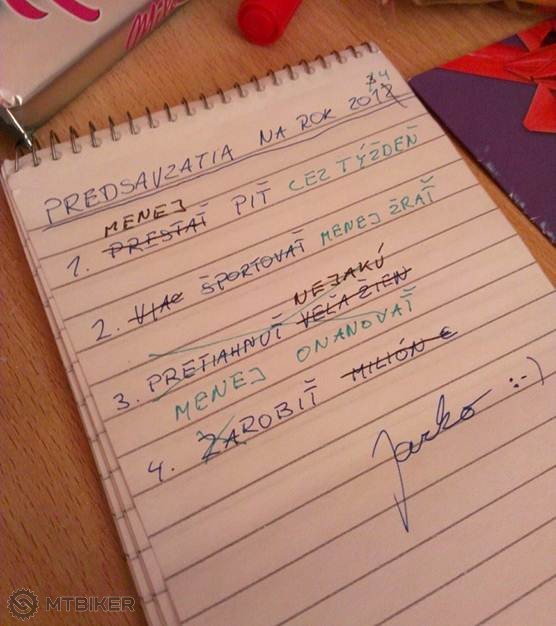 PREDSAVZATIA NA ROK 2012 34
MENEJ
1. PRESTAŤ PIŤ CEZ TÝŽDEŇ
2. VIAC ŠPORTOVAŤ MENEJ ŽRAŤ
NEJAKÚ
3. PRETIAHNUŤ VEĽA ŽIEN
MENEJ ONANOVAŤ
4. ZAROBIŤ MILIÓN €
Jarko :-)
MTBIKER